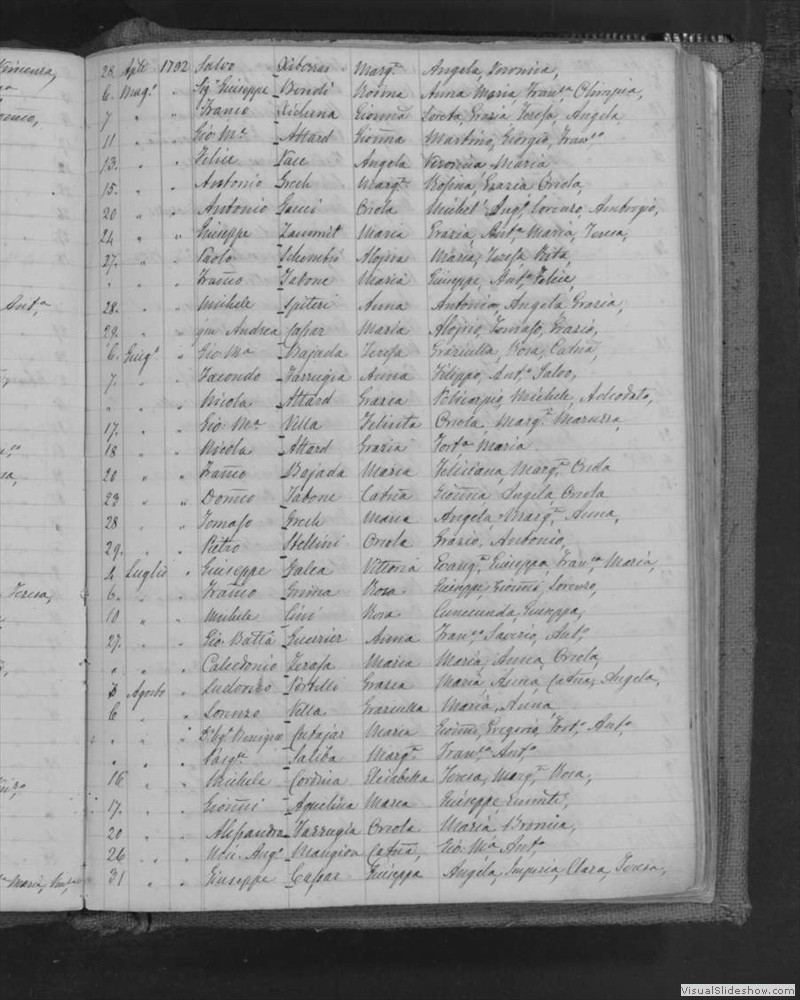 28 Aple 1792 Salvo Xiberras Marg.ta Angela, Veronica,
6. Mag.o " Sig.r Giuseppe Bondi Rosina Anna Maria, Fran.ca Olimpia,
7 " " Franco Xicluna Gioanna Loreta, Grazia Teresa, Angela
11 " " Gio: M.a Attard Gioanna Martino, Giorgio, Fran.co
13. " " Felice Pace Angela Veronica Maria
15. " " Antonio Grech Marg.ta Rosina, Grazia Oriola,
20 " " Antonio Gauci Oriola Michel' Ang.o, Lorenzo, Ambrogio,
24 " " Giuseppe Zammit Maria Grazia, Ant.a Maria, Teresa,
27. " " Paolo Schembri Aloisia Maria, Teresa Rita,
" " " Franco Tabone Maria Giuseppe, Ant.o Felice,
28. " " Michele Spiteri Anna Antonia, Angela Grazia,
29. " " qm Andrea Cassar Maria Aloisio, Tomaso, Grazio,
6. Giug.o " Gio: M.a Bajada Teresa Graziulla, Rosa, Catna,
7. " " Facondo Farrugia Anna Filippo, Ant.o Salvo,
" " " Nicola Attard Grazia Policarpio, Michele, Adeodato,
17. " " Gio: M.a Vella Felicita Oriola, Marg.ta Maruzza,
18 " " Nicola Attard Grazia Fort.a Maria
20 " " Franco Bajada Maria Feliciana, Marg.ta
23 " " Domco Tabone Catna Gioanna Angela Oriola
28 " " Tomaso Grech Maria Angela Marg.ta Anna,
29. " " Pietro Stellini Oriola Grazio, Antonio,
4 Luglio " Giuseppe Galea Vittoria Evang.ta, Giuseppa, Fran.ca Maria,
6. " " Franco Grima Rosa Giuseppe, Gioanni, Lorenzo,
10 " " Michele Cini Rosa Cunecunda, Giuseppa,
27. " " Gio: Batta Guerrier Anna Fran.co Saverio, Ant.o
" " " Calcedonio Teresa Maria Maria, Anna, Oriola,
Agosto " Ludovico Portelli Grazia Maria, Anna, Catna, Angela,
6 " " Lorenzo Vella Graziulla Maria, Anna
" " " Cutajar Maria Gioanni, Gregorio, Fort.o Ant.o
" " " Saliba Marg.ta Fran.ca Ant.a
16 " " Michele Cordina Elisabetta Teresa, Marg.ta Rosa,
17. " " Gioanni Aquilina Maria Giuseppe,
20 " " Alessandro Farrugia Oriola Maria
26 " " Ang.o Mangion Catna, Gio: M.a Ant.o
31 " " Giuseppe Cassar Giuseppa Angela, Imperia, Clara, Teresa,
Teresa,
VisualSlideshow.com